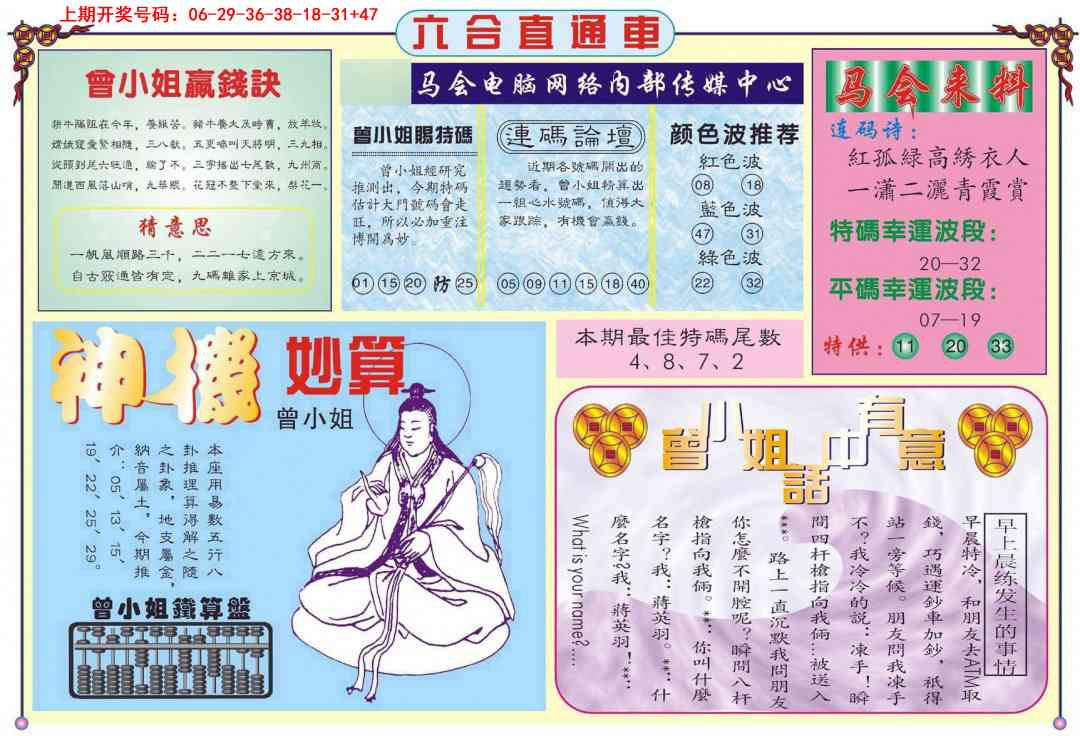 上期开奖号码：06-29-36-38-18-31+47
六合直通車
马会电脑网络内部传媒中心
曾小姐贏錢訣
猜意思
一帆風順路三千，二二一七遠方來。
自古窮通皆有定，九碼離家上京城。
曾小姐賜特碼
曾小姐經研究
推測出，今期特碼
估計大門號碼會走
旺，所以必加重注
博開爲妙。
01 15 20 防 25
連碼論壇
近期各號碼開出的
趨勢看，曾小姐精算出
一組心水號碼，值得大
家跟踪，有機會贏錢。
05 09 11 15 18 40
颜色波推荐
紅色波
08 18
藍色波
47 31
綠色波
22 32
马会来料
连码诗：
紅孤緑高綉衣人
一瀟二灑青霞賞
特碼幸運波段：
20—32
平碼幸運波段：
07—19
特供：11 20 33
神機妙算
曾小姐
本座用易數五行八
卦推理算得解之隨
之卦象，地支屬金，
納音屬土，今期推
介：05、13、15、
19、22、25、29。
曾小姐鐵算盤
本期最佳特碼尾數
4、8、7、2
曾小姐話中有意
早上晨练发生的事情
早晨特冷，和朋友去ATM取
錢，巧遇運鈔車加鈔，祇得
站一旁等候。朋友問我凍手
不？我冷冷的説：凍手！瞬
間四杆槍指向我倆…被送入
***。路上一直沉默我問朋友
你怎麼不開腔呢？瞬間八杆
槍指向我倆。***：你叫什麼
名字？我：蔣英羽。***：什
麼名字?我：蔣英羽！***：
What is your name?....